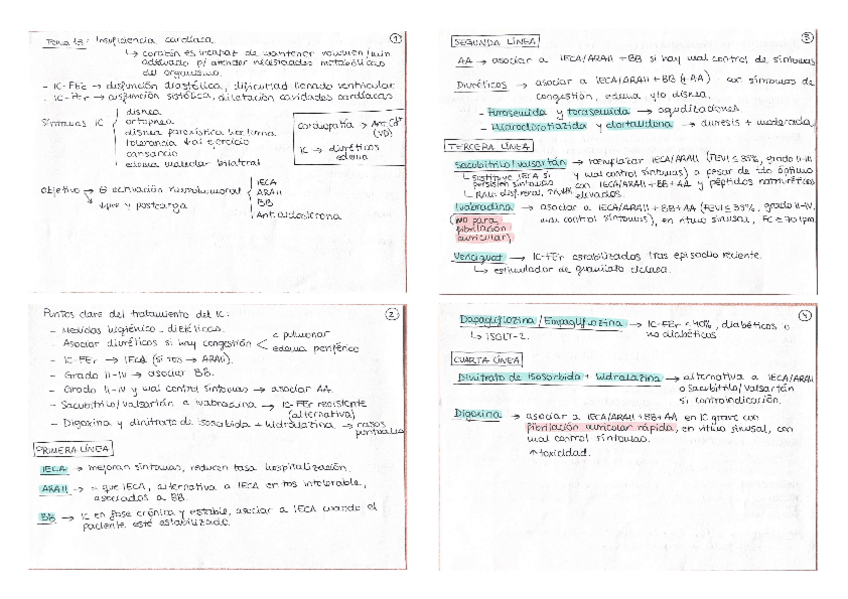 Tema 18: Insuficiencia cardíaca
1
↳ corazón es incapaz de mantener volumen/min
adecuado p/ atender necesidades metabólicas
del organismo.
- IC-FEc → disfunción diastólica, dificultad llenado ventricular
- IC-FEr → disfunción sistólica, dilatación cavidades cardíacas
Síntomas IC
disnea
ortopnea
disnea paroxística nocturna
tolerancia al ejercicio
cansancio
edema maleolar bilateral
Cardiopatía → Ant. Ca²⁺
(VD)
IC → diuréticos
edema
Objetivo → ⊖ activación neurohumonal
y postcarga
IECA
ARAII
BB
Ant. aldosterona
Puntos clave del tratamiento del IC:
2
- Medidas higiénico-dietéticas.
- Asociar diuréticos si hay congestión
c pulmonar
edema periférico
- IC-FEr → IECA (si tos → ARAII).
- Grado II-IV → asociar BB.
- Grado II-IV y mal control síntomas → asociar AA
- Sacubitrilo/valsartán e ivabradina → IC-FEr resistente
(alternativa)
- Digoxina y dinitrato de isosorbida + hidralazina → casos
puntuales
PRIMERA LÍNEA
IECA → mejoran síntomas, reducen tasa hospitalización.
ARAII → = que IECA, alternativa a IECA en tos intolerable,
asociados a BB.
BB → IC en fase crónica y estable, asociar a IECA cuando el
paciente esté estabilizado.
SEGUNDA LÍNEA
3
AA → asociar a IECA/ARAII + BB si hay mal control de síntomas
Diuréticos → asociar a IECA/ARAII + BB (+AA) con síntomas de
congestión, edema y/o disnea.
- Furosemida y torasemida → agudizaciones
- Hidroclorotiazida y clortalidona → diuresis + moderada
TERCERA LÍNEA
Sacubitrilo/valsartán → reemplazar IECA/ARAII (FEVI ≤ 35%, grado II-IV
y mal control síntomas) a pesar de tto óptimo
con IECA/ARAII + BB + AA y péptidos natriuréticos
elevados.
↳ sustituye IECA si
persisten síntomas
Ivabradina → asociar a IECA/ARAII + BB + AA (FEVI ≤ 35%, grado II-IV,
mal control síntomas), en ritmo sinusal, FC ≥ 70 lpm
(no para
fibrilación
auricular)
Vericiguat → IC-FEr estabilizados tras episodio reciente.
↳ estimulador de guanilato ciclasa.
Dapagliflozina/Empagliflozina → IC-FEr < 40%, diabéticos o
no diabéticos
4
↳ iSGLT-2.
CUARTA LÍNEA
Dinitrato de isosorbida + hidralazina → alternativa a IECA/ARAII
o Sacubitrilo/Valsartán
si contraindicación.
Digoxina → asociar a IECA/ARAII + BB + AA en IC grave con
fibrilación auricular rápida, en ritmo sinusal, con
mal control síntomas.
↑ toxicidad.